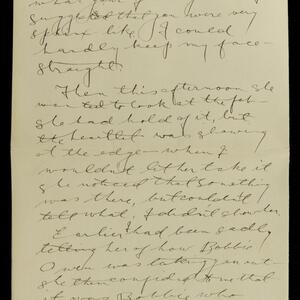 suggested that you were very
sphinx like I could
hardly keep my face
straight.
Then this afternoon she
wanted to look at the fob
she had hold of it, but
the heartlet was showing
at the edge when I
wouldn't let her take it
she noticed that something
was there, but couldn't
tell what. I didn't show her
Earlier had been sadly
telling her of how Bobbie
Owen was taking
she then confided to me that
it was Bobbie who